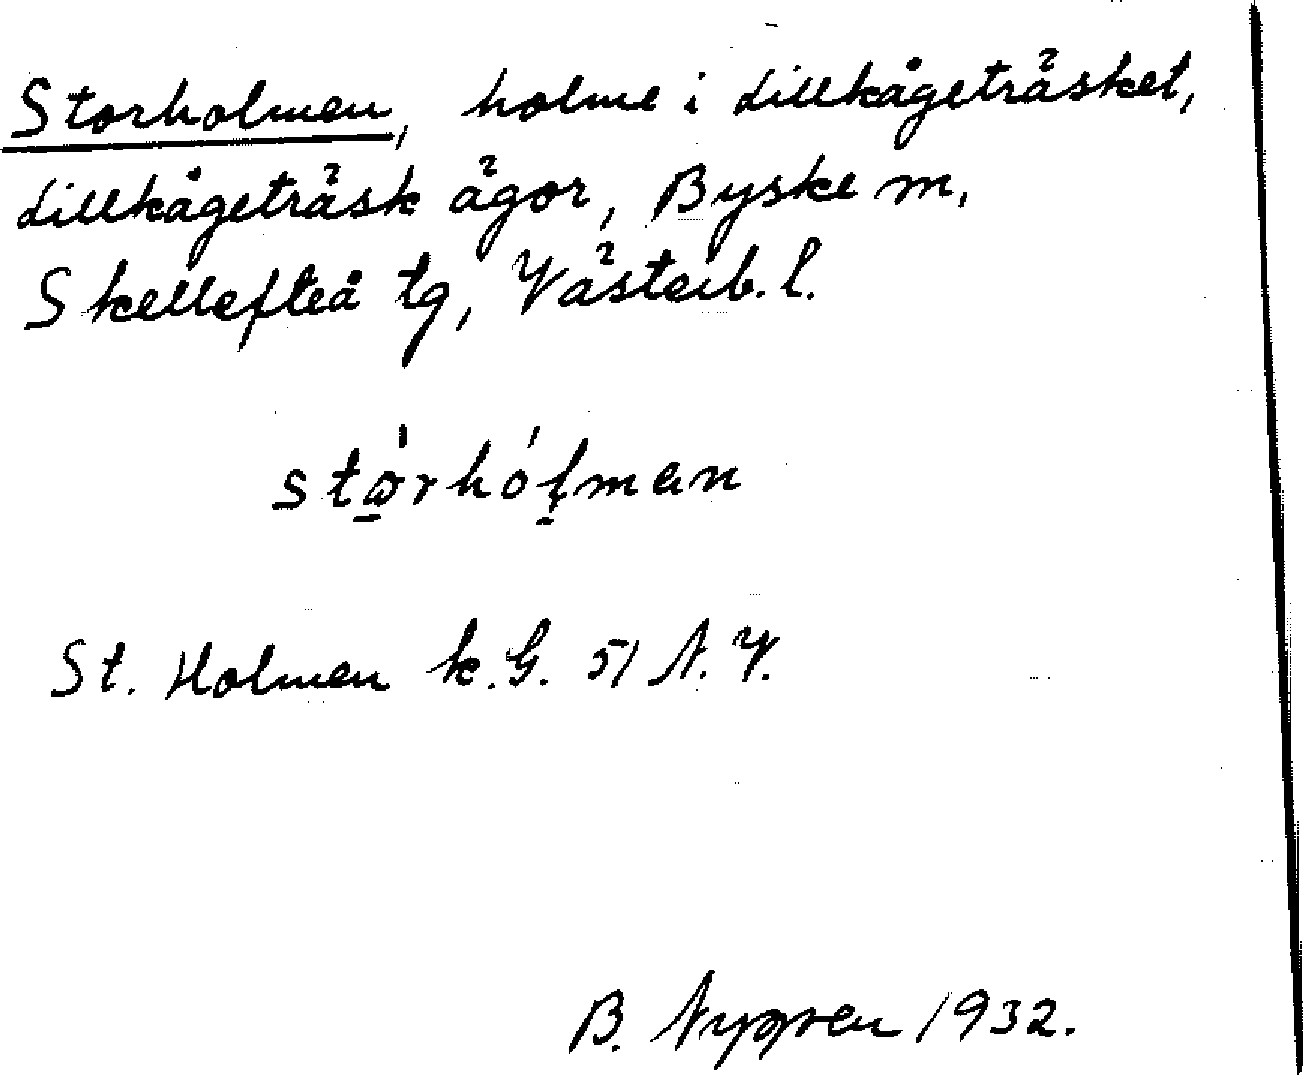 Storholmen, holme i Lillkågeträsket,
Lillkågeträsk ägor, Byske sn,
Skellefteå tg, Västerb. l.
stórhólmen
St. Holmen k. G. 51 N. V.
B. Nygren 1932.